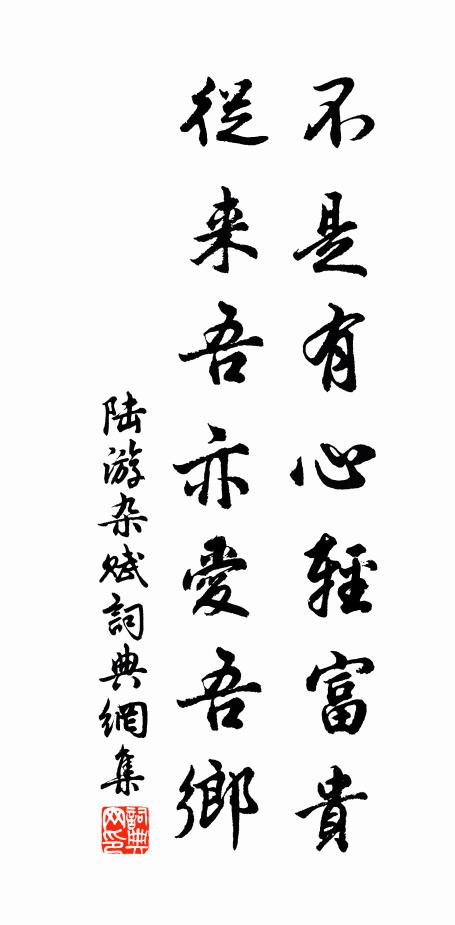 不是有心輕富貴
従来吾亦愛吾鄉
陆游杂赋詞典網集
詞典网印